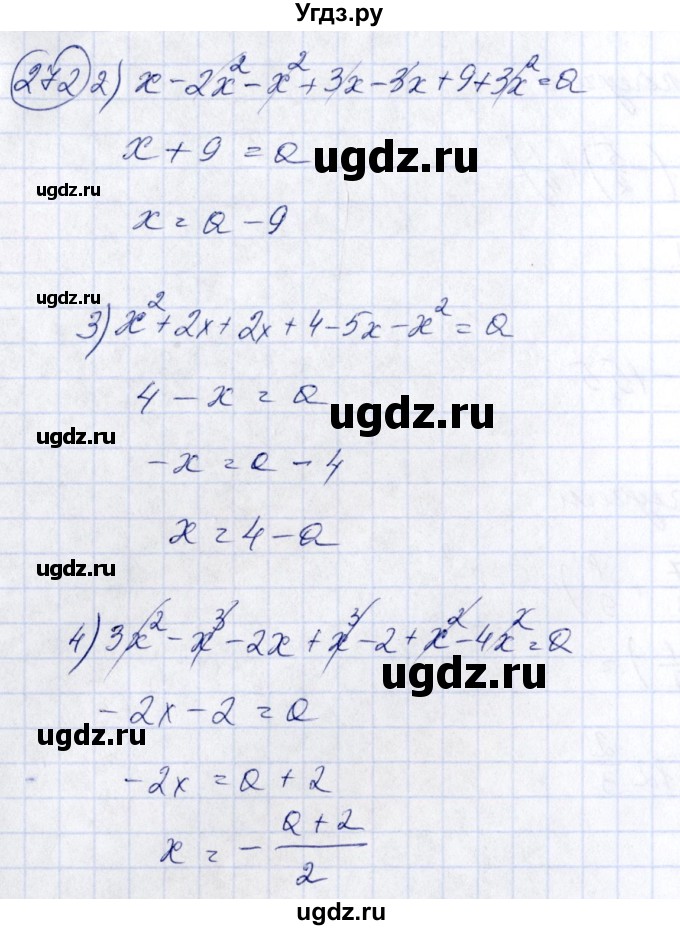 Угдз.ру
272 2) x - 2x² - x² + 3x - 3x + 9 + 3x² = a
x + 9 = a
ugdz.ru
ugdz.ru
x = a - 9
ugdz.ru
3) x² + 2x + 2x + 4 - 5x - x² = a
4 - x = a
ugdz.ru
ugdz.ru
-x = a - 4
x = 4 - a
ugdz.ru
4) 3x² - x³ - 2x + x³ - 2 + x² - 4x² = a
ugdz.ru
-2x - 2 = a
ugdz.ru
-2x = a + 2
x = - (a + 2)/2
ugdz.ru